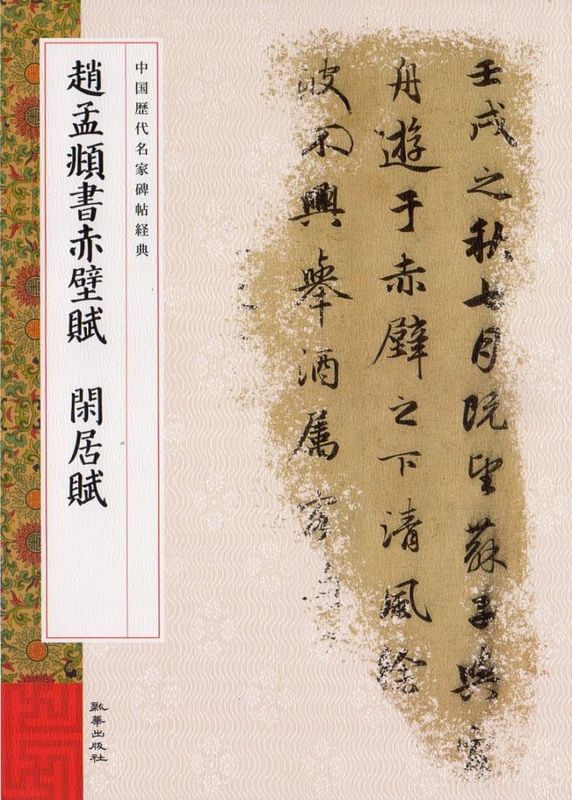 壬戌之秋七月既望蘇子與客
舟遊于赤壁之下清風徐
波不興舉酒屬客
中国歴代名家碑帖経典
趙孟頫書赤壁賦 閑居賦
華出版社